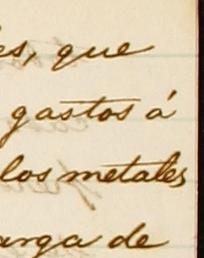 es, que
gastos á
los metales
arga de